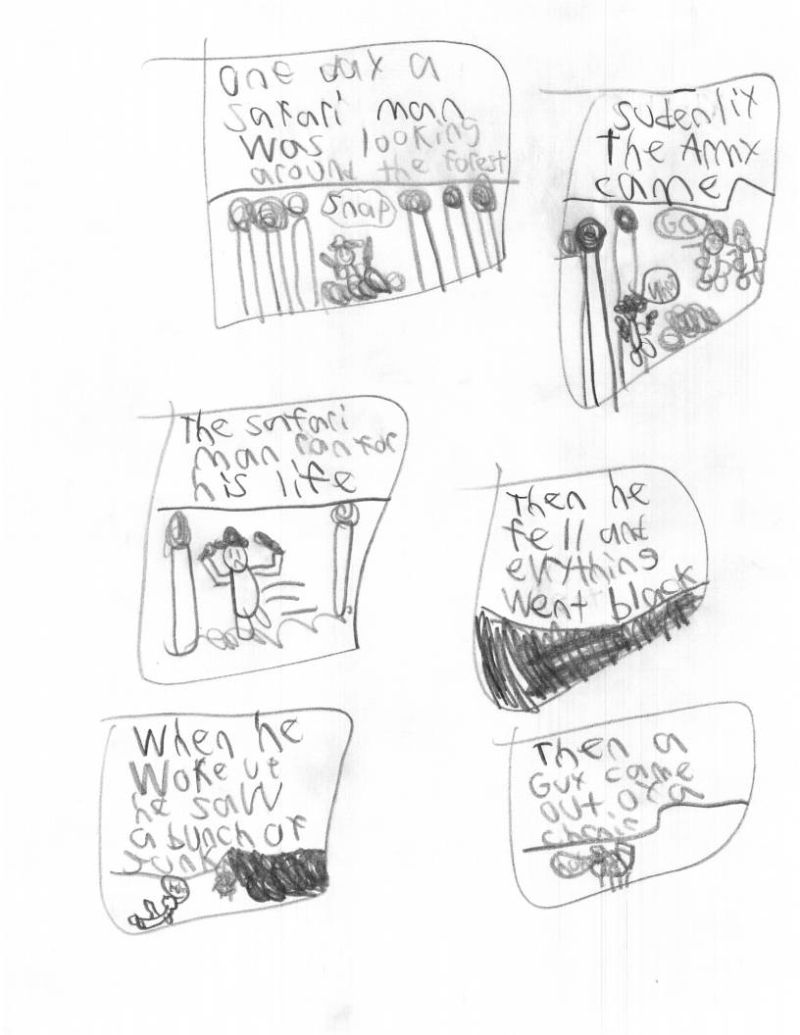 one day a
safari man
was looking
around the forest
Snap
sudenlly
the Army
came
GO
The safari
man ran for
his life
Then he
fell and
evrything
went black
When he
woke up
he saw
a bunch of
junk
Then a
Guy came
out of a